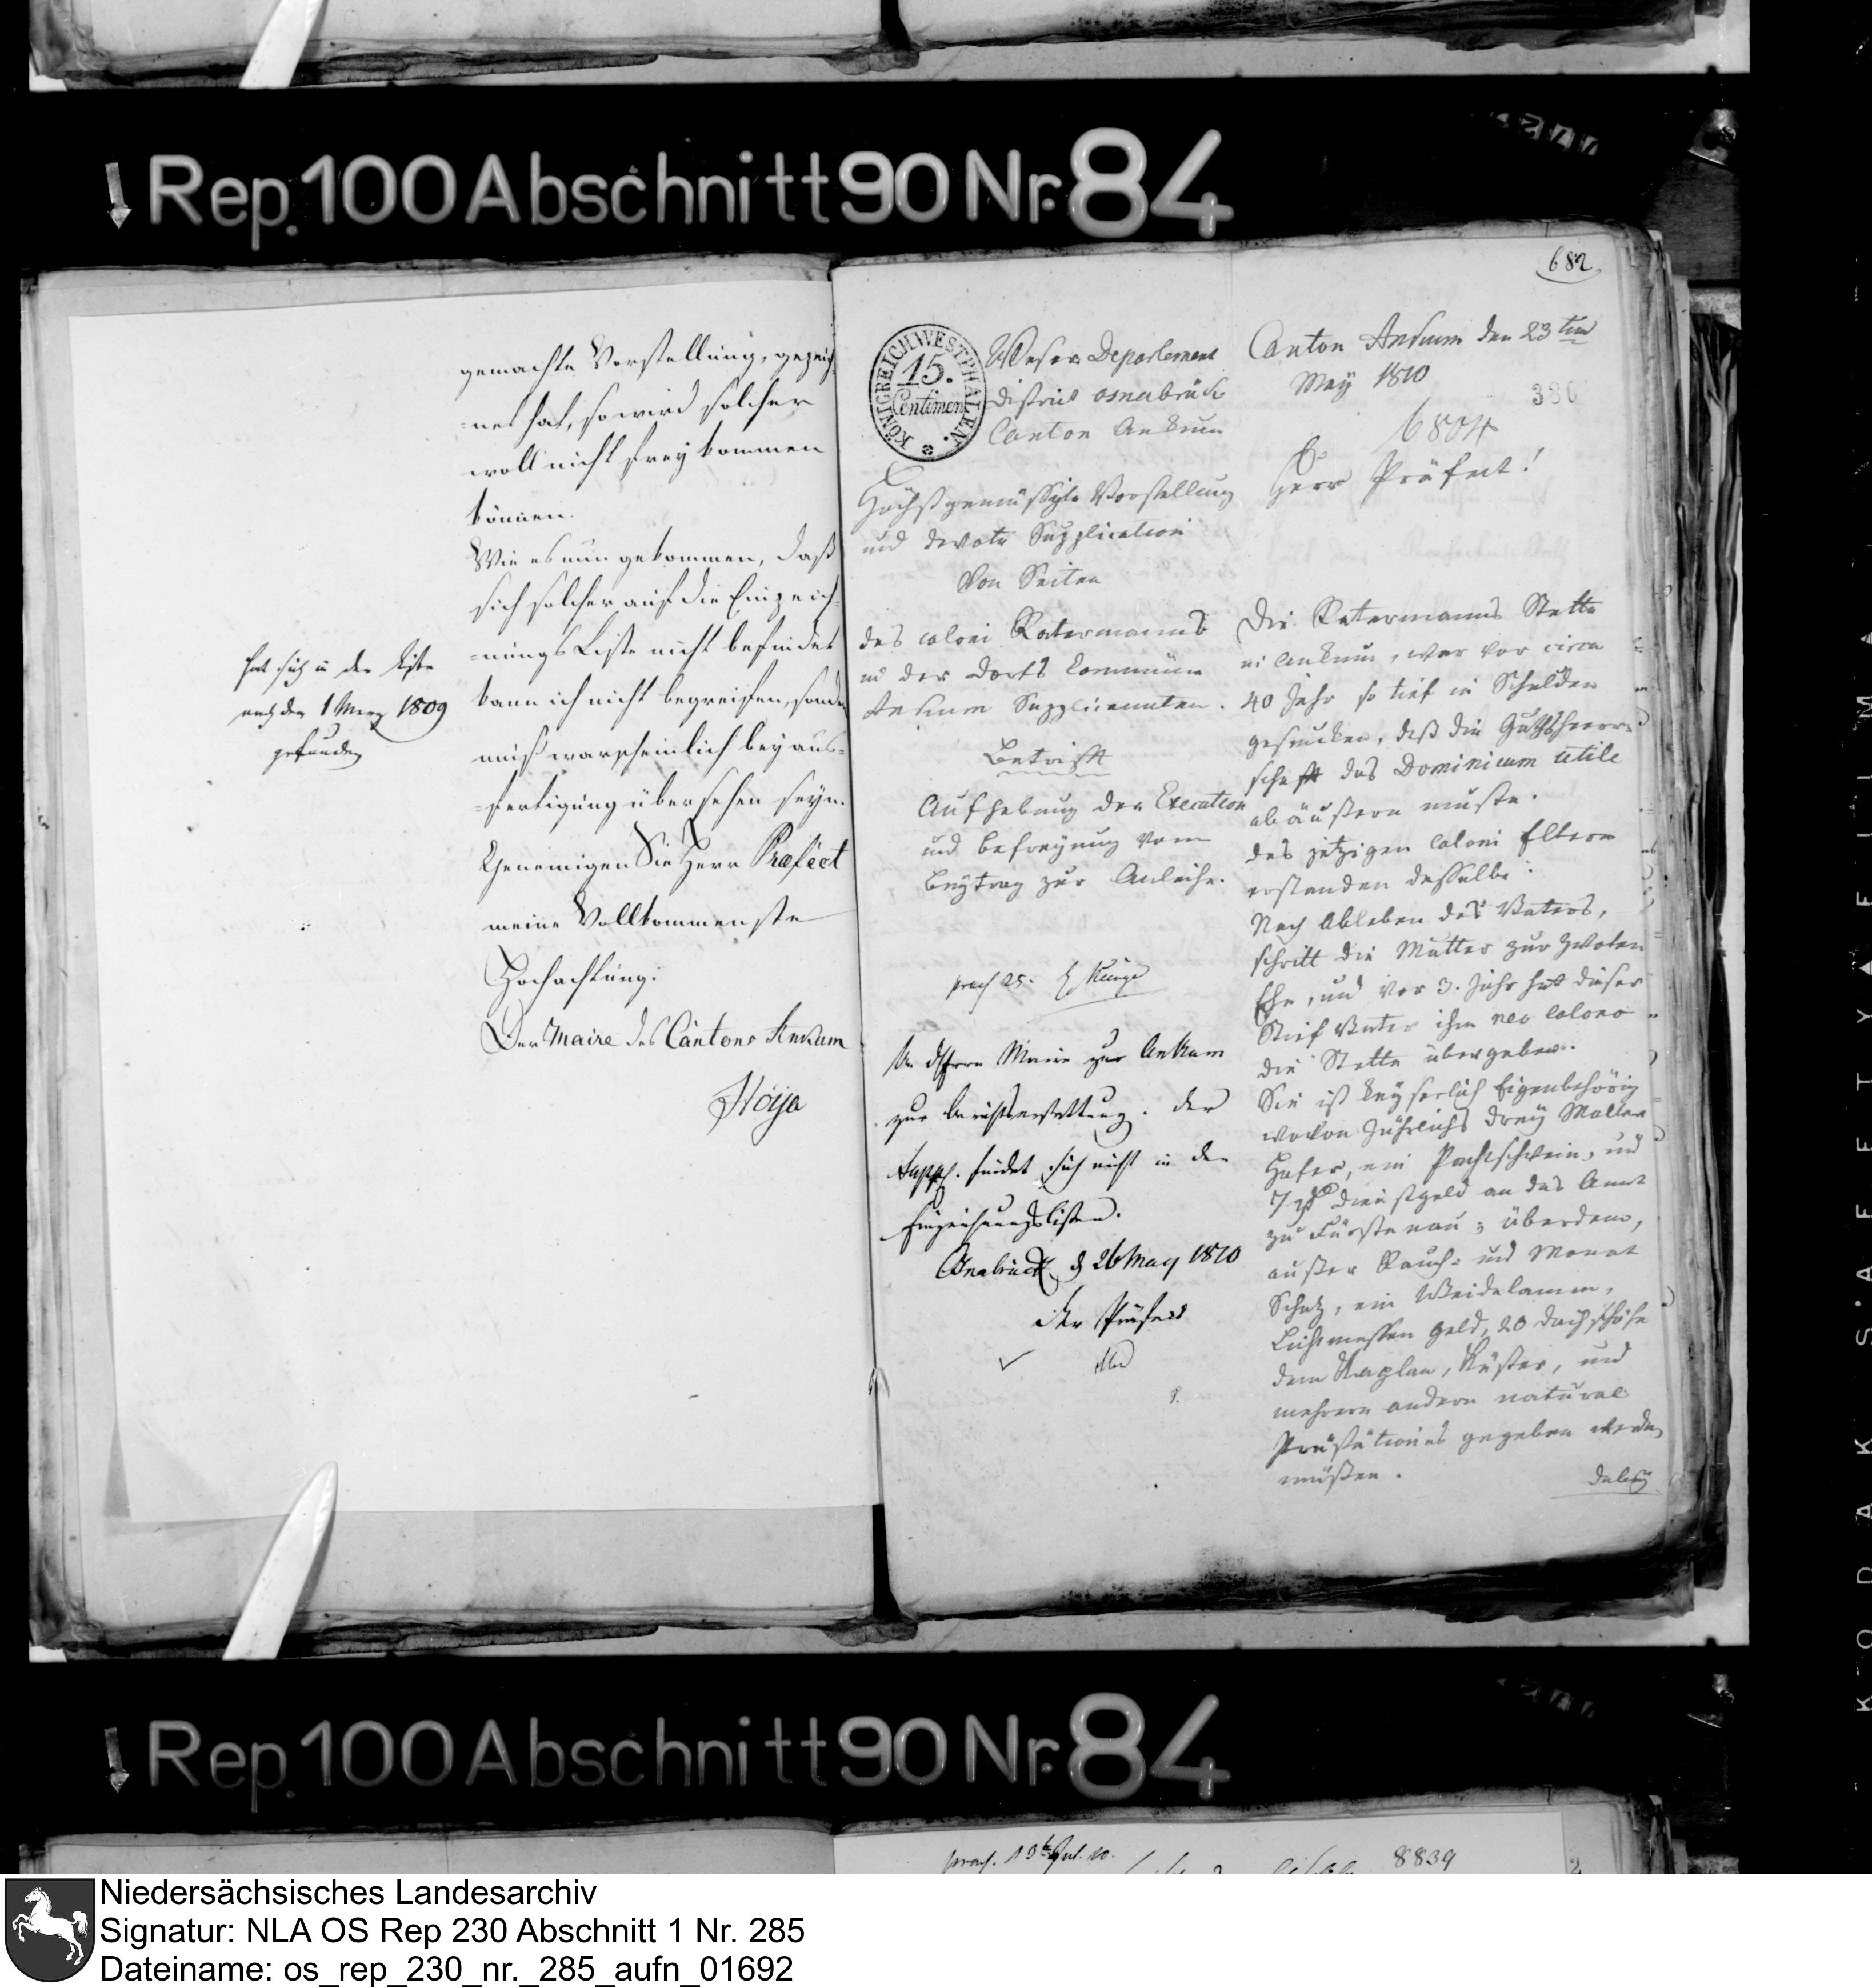 Rep. 100 Abschnitt 90 Nr. 84
gemachte Vorstellung, gezeich-
=net hat, so wird solcher
woll nicht frey kommen
können.
Wie es nun gekommen, daß
sich solcher auf die Einzeich-
=nungs Liste nicht befindet
kann ich nicht begreifen, sondern
muß warscheinlich bey aus-
=fertigung übersehen seyn.
Genemigen Sie Herr Præfect
meine Vollkommenste
Hochachtung.
Der Maire des Cantons Ankum
hat sich in der Liste
1 Merz 1809
gefunden
682
KÖNIGREICH WESTPHALEN.
15.
Centimen
Weser Departement
District Osnabrück
Canton Ankum
Höchstgemüssigte Vorstellung
und devote Supplication
Von Seiten
des coloni Ratermanns
in der Dorfs Commüne
Ankum Supplicanten.
Betrifft
Aufhebung der Execution
und Befreyung vom
Beytrag zur Anleihe.
An den Herrn Maire zur Ankum
zur Berichtserstattung. Der
Suppl. findet sich nicht in den
Einzeichnungslisten.
Osnabrück d 26 May 1810
Der Präfect
Canton Ankum den 23ten
May 1810
386
6804
Herr Präfect!
Die Ratermanns Stette
in Ankum, war vor circa
40 Jahr so tief in Schulden
gesuncken, daß die Guthsherr-
schaft das Dominium utile
abäußern muste.
Des jetzigen Coloni Eltern
erstanden dasselbe.
Nach Ableben des Vaters,
schritt die Mutter zur zwoten
Ehe, und vor 3. Jahr hat dieser
Stief Vater ihm neo Colono
die Stette übergeben.
Sie ist Eigenbehörig
wovon Jährlichs drey Malter
Hafer, ein Pachtschwein, und
7 Dienstgeld an das Amt
zu Fürstenau; überdem,
außer Rauch- und Monat
Schatz, ein Weidelamm,
Lichtmessen Geld, 20 Dachschöfe
dem Kaplan, Küster, und
mehrern andern natural
Präställones gegeben werden
müßen.
Dabey
Rep. 100 Abschnitt 90 Nr. 84
8839
KODAK SAFETY FILM
Niedersächsisches Landesarchiv
Signatur: NLA OS Rep 230 Abschnitt 1 Nr. 285
Dateiname: os_rep_230_nr._285_aufn_01692